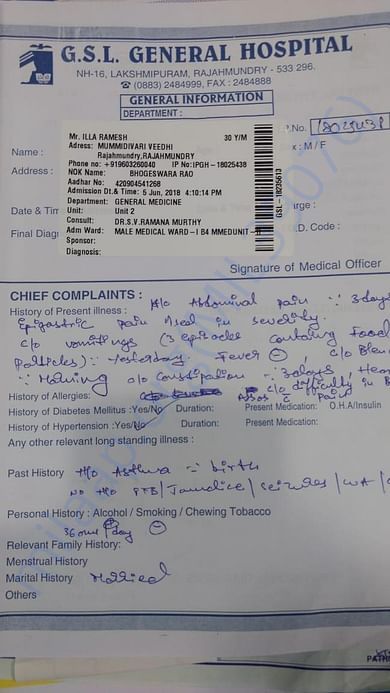 G.S.L. GENERAL HOSPITAL
NH-16, LAKSHMIPURAM, RAJAHMUNDRY - 533 296.
☎ (0883) 2484999, FAX : 2484888
GENERAL INFORMATION
DEPARTMENT :
P.No. 18025438
Mr. ILLA RAMESH 30 Y/M
Adress: MUMMIDIVARI VEEDHI
Rajahmundry,RAJAHMUNDRY
Phone no: +919603260040 IP No:IPGH - 18025438
NOK Name: BHOGESWARA RAO
Aadhar No: 420904541268
Admission Dt.& Time: 5 Jun, 2018 4:10:14 PM
Department: GENERAL MEDICINE
Unit: Unit 2
Consult: DR.S.V.RAMANA MURTHY
Adm Ward: MALE MEDICAL WARD-I B4 MMEDUNIT-II
Sponsor:
Diagnosis:
GSL - 18235613
Name :
x : M / F
Address :
Date & Tim
rge :
Final Diag
D. Code :
Signature of Medical Officer
CHIEF COMPLAINTS :
History of Present illness : H/o Abdominal pain 3days
Epigastric pain in severity.
c/o vomitings (3 episodes containg Food
Particles) : Yesterday Fever ⊖, c/o
c/o Constipation 3days
History of Allergies: c/o difficulty in
History of Diabetes Mellitus :Yes/No Duration: Present Medication: O.H.A/Insulin
History of Hypertension :Yes/No Duration: Present Medication:
Any other relevant long standing illness :
Past History H/o Asthma birth
No H/o PTB / Jaundice / Seizures /
Personal History : Alcohol / Smoking / Chewing Tobacco
/day ⊖
Relevant Family History:
Menstrual History
Marital History Married
Others